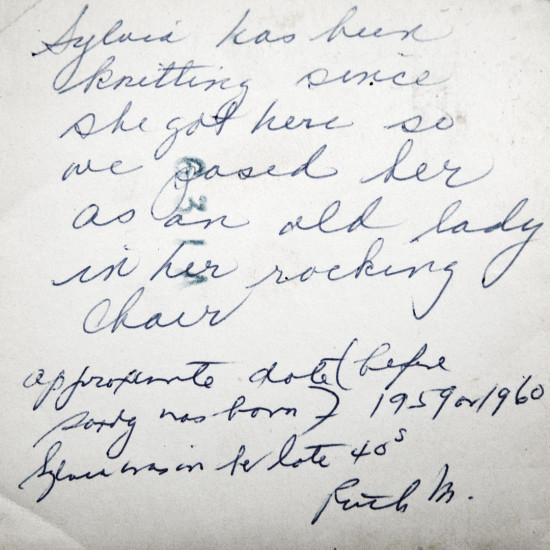 Sylvia has been
knitting since
she got here so
we posed her
as an old lady
in her rocking
chair
approximate date (before
Sandy was born) 1959 or 1960
Sylvia was in her late 40s
Ruth M.